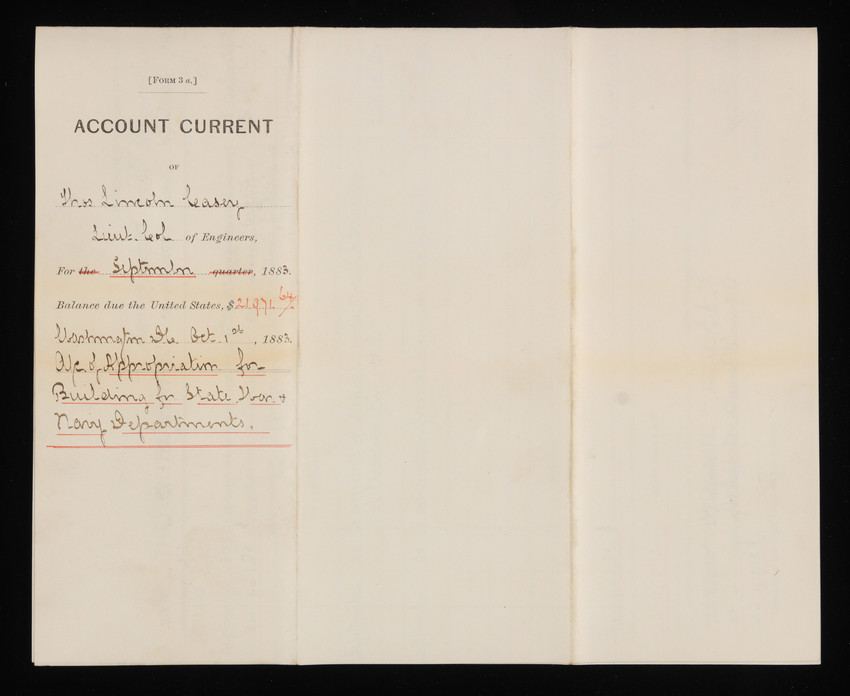 [FORM 3 a.]
ACCOUNT CURRENT
OF
Thos. Lincoln Casey
Lieut. Col. of Engineers,
For the September quarter, 1883.
Balance due the United States, $21971 64/
Washington DC. Oct. 1st, 1883.
A/c of Appropriation for
Building for State War &
Navy Departments.